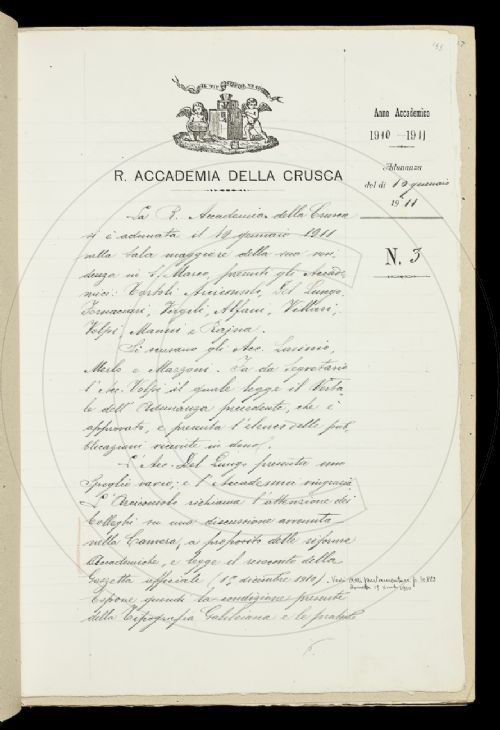 R. ACCADEMIA DELLA CRUSCA
Anno Accademico
1910-1911
Adunanza
del dì 19 gennaio
1911
N. 3
La R. Accademia della Crusca
si è adunata il 19 gennaio 1911
nella Sala maggiore della sua resi-
denza in S. Marco, presenti gli Accade-
mici: Tortoli Arciconsolo, Del Lungo,
Tornaciani, Vergili, Alfani, Villari,
Volpi, Mannu e Rajna.
Si scusano gli Acc. Lasinio,
Merlo e Mazzoni. Fa da Segretario
l'Acc. Volpi il quale legge il Verba-
le dell'Adunanza precedente, che è
approvato, e presenta l'elenco delle pub-
blicazioni ricevute in dono.
L'Acc. Del Lungo presenta uno
Spoglio vario; e l'Accademia ringrazia
L'Arciconsolo richiama l'attenzione dei
Colleghi su una discussione avvenuta
nella Camera, a proposito delle riforme
Accademiche, e legge il resoconto della
Gazzetta ufficiale (1º dicembre 1910).
Espone quindi la condizione presente
della Tipografia Galileiana e le pratiche